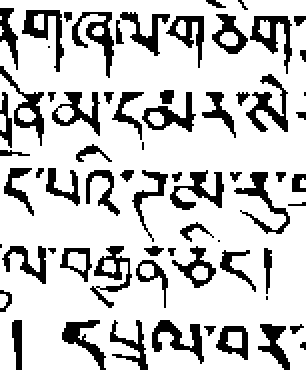 ནག་ཞལ་གཅིག་
མ་དམར་སེར
ད་པའི་ཌ་མ་རུ་
ལ་བརྒྱན་ཅིང་།
། དཔྲལ་བར་